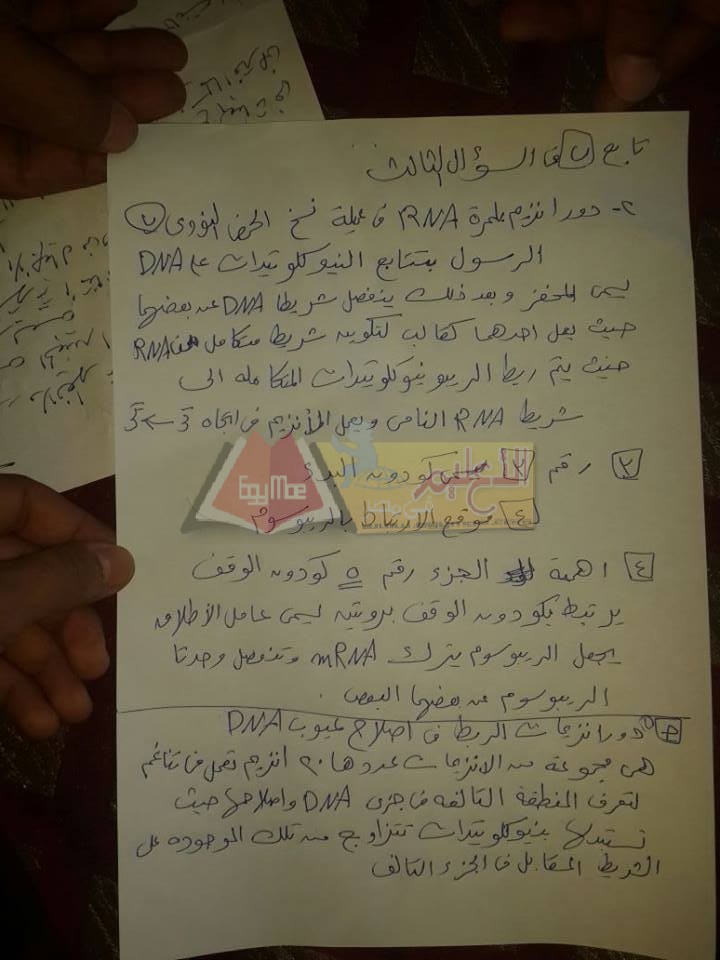 تابع ب فى السؤال الثالث
٢- دور انزيم بلمرة RNA فى عملية نسخ الحمض النووى
الرسول بتتابع النيوكلوتيدات على DNA
ليسمى المحفز وبعد ذلك ينفصل شريطا DNA عن بعضهما
حيث يعمل احدهما كقالب لتكوين شريط متكامل من RNA
حيث يتم ربط الريبونيوكلوتيدات المتكامله الى
شريط RNA النامى ويعمل الانزيم فى اتجاه 3َ ← 5َ
٣ رقم ٣ كودون البدء
٤ موقع الارتباط بالريبوسوم
٤ اهمية الجزء رقم ٥ كودون الوقف
يرتبط بكودون الوقف بروتين يسمى عامل الأطلاق
يجعل الريبوسوم يترك mRNA وتنفصل وحدتا
الريبوسوم عن بعضهما البعض.
دور انزيمات الربط فى اصلاح عيوب DNA
هى مجموعة من الانزيمات عددها ٢٠ انزيم تعمل فى تناغم
لتعرف المنطقة التالفه فى جزئ DNA واصلاحها حيث
تستبدلها بنيوكلوتيدات تتزاوج مع تلك الموجوده على
الشريط المقابل فى الجزء التالف
EgyMoe